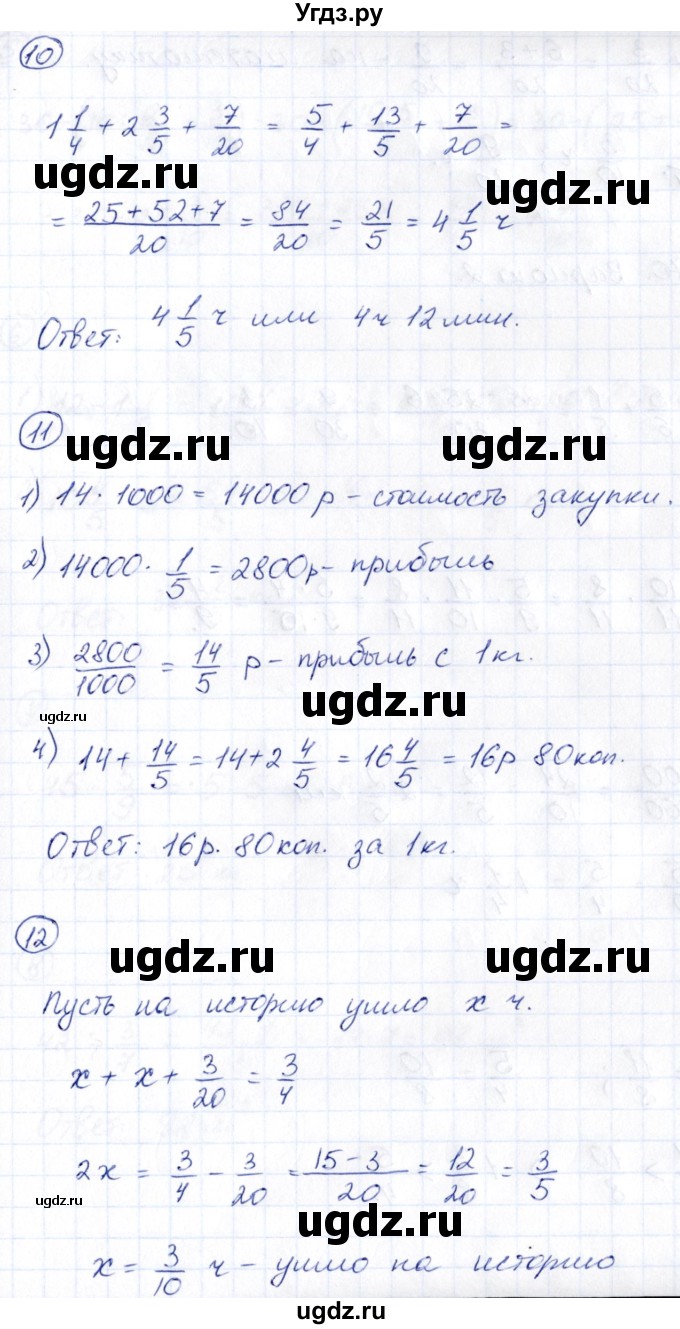 Угдз.ру
10
1 1/4 + 2 3/5 + 7/20 = 5/4 + 13/5 + 7/20 =
ugdz.ru ugdz.ru
= (25+52+7)/20 = 84/20 = 21/5 = 4 1/5 ч
Ответ: 4 1/5 ч или 4ч 12мин.
11
ugdz.ru ugdz.ru
1) 14 · 1000 = 14000 р – стоимость закупки.
2) 14000 · 1/5 = 2800р – прибыль
3) 2800/1000 = 14/5 р – прибыль с 1кг.
ugdz.ru ugdz.ru ugdz.ru
4) 14 + 14/5 = 14 + 2 4/5 = 16 4/5 = 16р 80коп.
Ответ: 16р. 80коп. за 1кг.
12
ugdz.ru ugdz.ru
Пусть на историю ушло х ч.
х + х + 3/20 = 3/4
2х = 3/4 − 3/20 = (15−3)/20 = 12/20 = 3/5
ugdz.ru ugdz.ru
х = 3/10 ч – ушло на историю
ugdz.ru